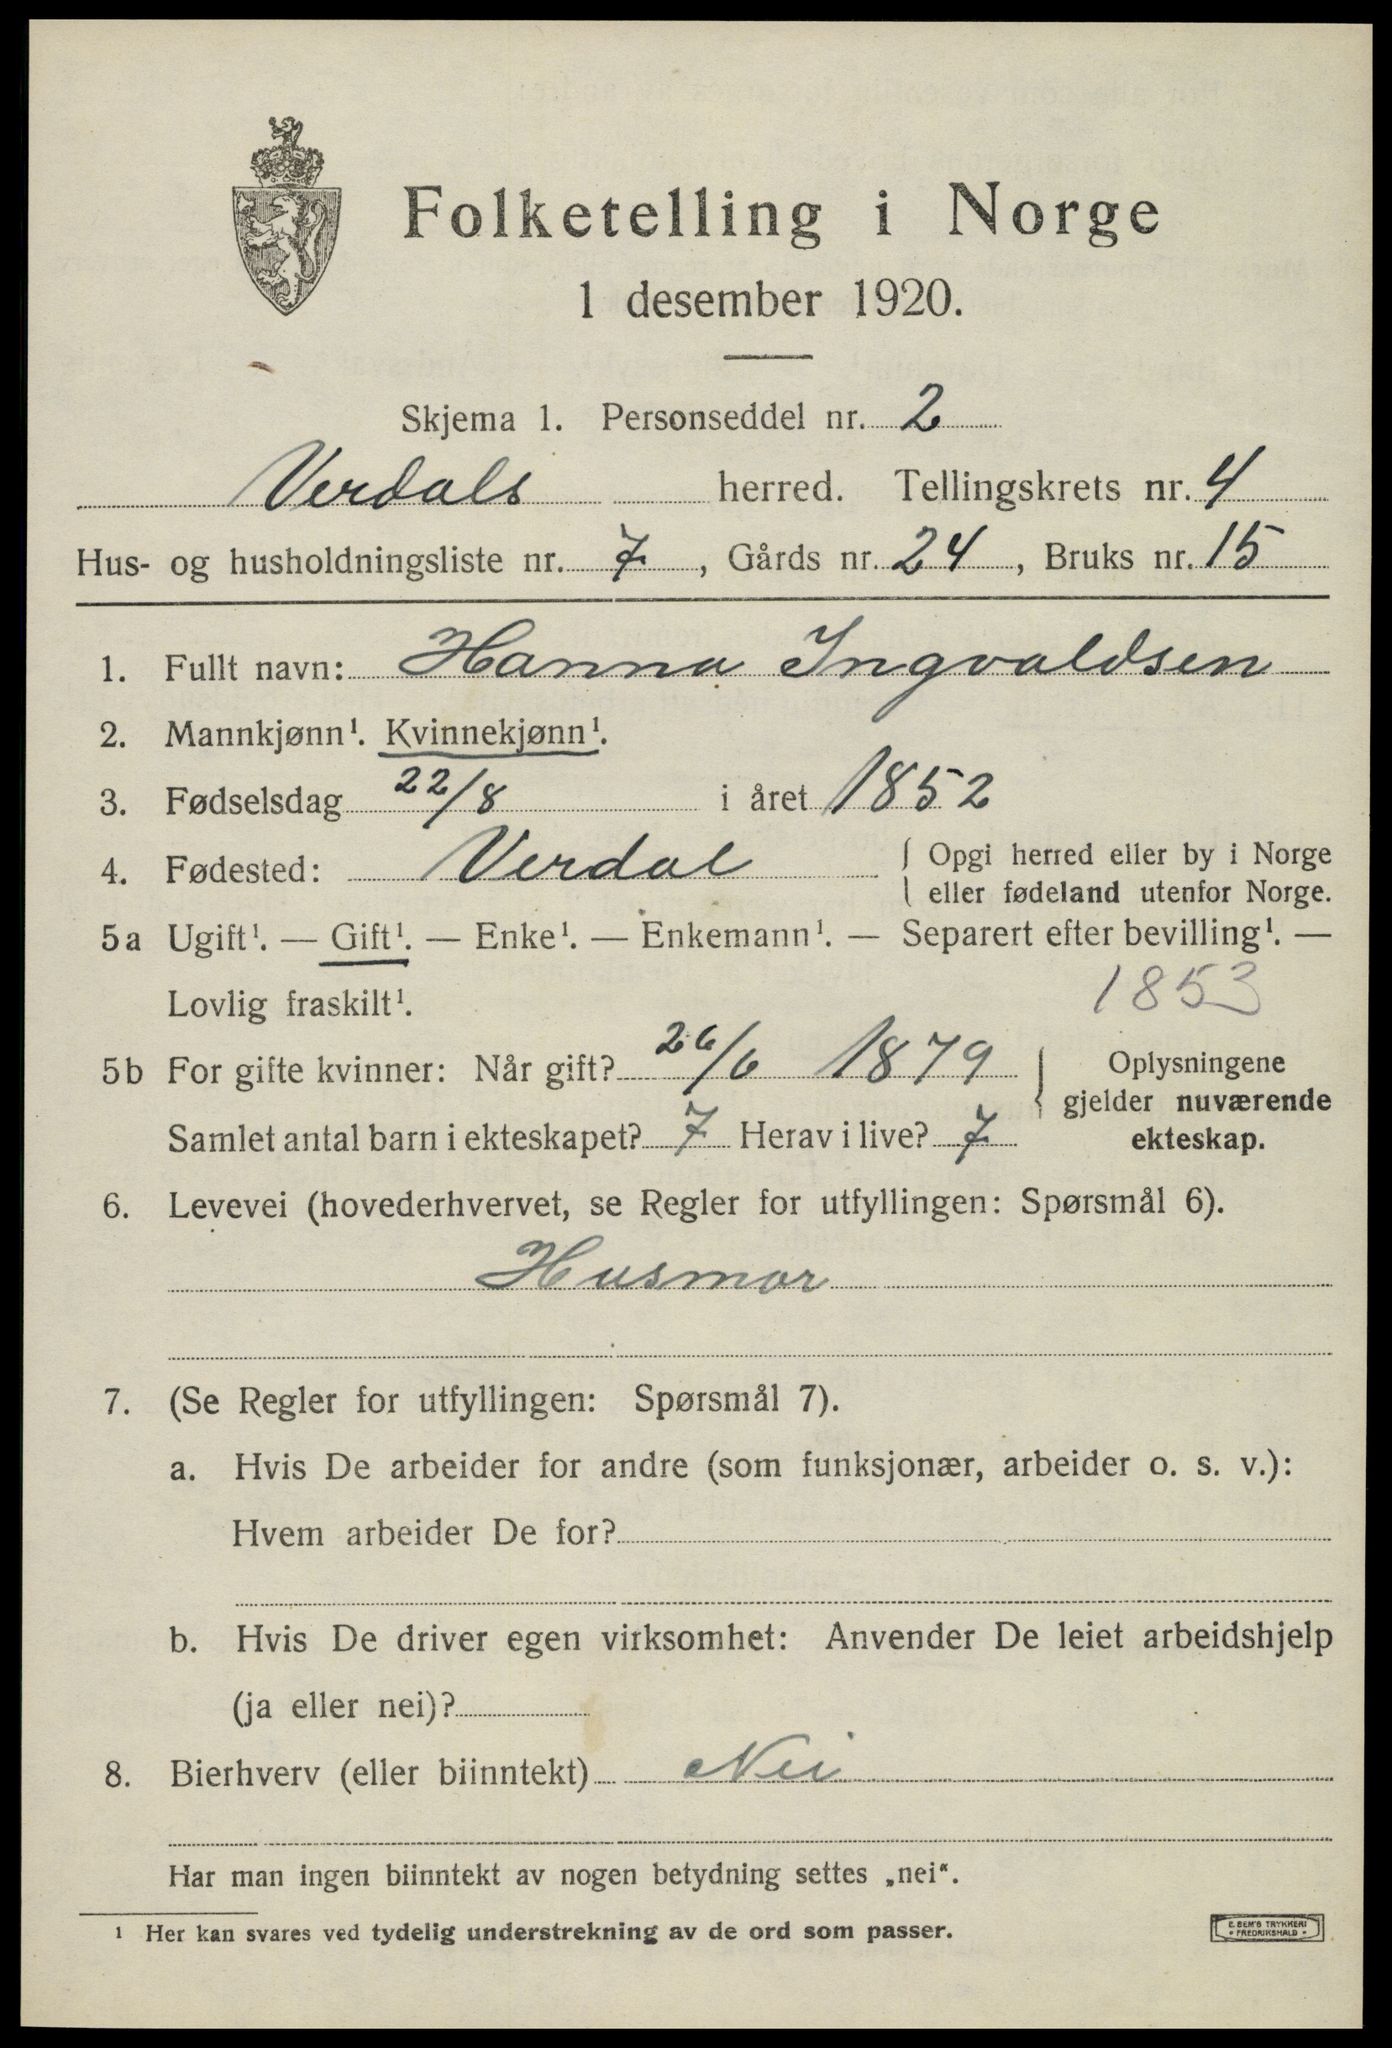 Folketelling i Norge
1 desember 1920.
Skjema 1. Personseddel nr. 2
Verdals herred. Tellingskrets nr. 4
Hus- og husholdningsliste nr. 7, Gårds nr. 24, Bruks nr. 15
1. Fullt navn: Hanna Ingvaldsen
2. Mannkjønn¹. Kvinnekjønn¹.
3. Fødselsdag 22/8 i året 1852
4. Fødested: Verdal { Opgi herred eller by i Norge
eller fødeland utenfor Norge.
5a Ugift¹. — Gift¹. — Enke¹. — Enkemann¹. — Separert efter bevilling¹. —
Lovlig fraskilt¹. 1853
5b For gifte kvinner: Når gift? 26/6 1879 { Oplysningene
gjelder nuværende
Samlet antal barn i ekteskapet? 7 Herav i live? 7 ekteskap.
6. Levevei (hovederhvervet, se Regler for utfyllingen: Spørsmål 6).
Husmor
7. (Se Regler for utfyllingen: Spørsmål 7).
a. Hvis De arbeider for andre (som funksjonær, arbeider o. s. v.):
Hvem arbeider De for?
b. Hvis De driver egen virksomhet: Anvender De leiet arbeidshjelp
(ja eller nei)?
8. Bierhverv (eller biinntekt) Nei
Har man ingen biinntekt av nogen betydning settes „nei“.
¹ Her kan svares ved tydelig understrekning av de ord som passer.
E. SEM'S TRYKKERI
FREDRIKSHALD